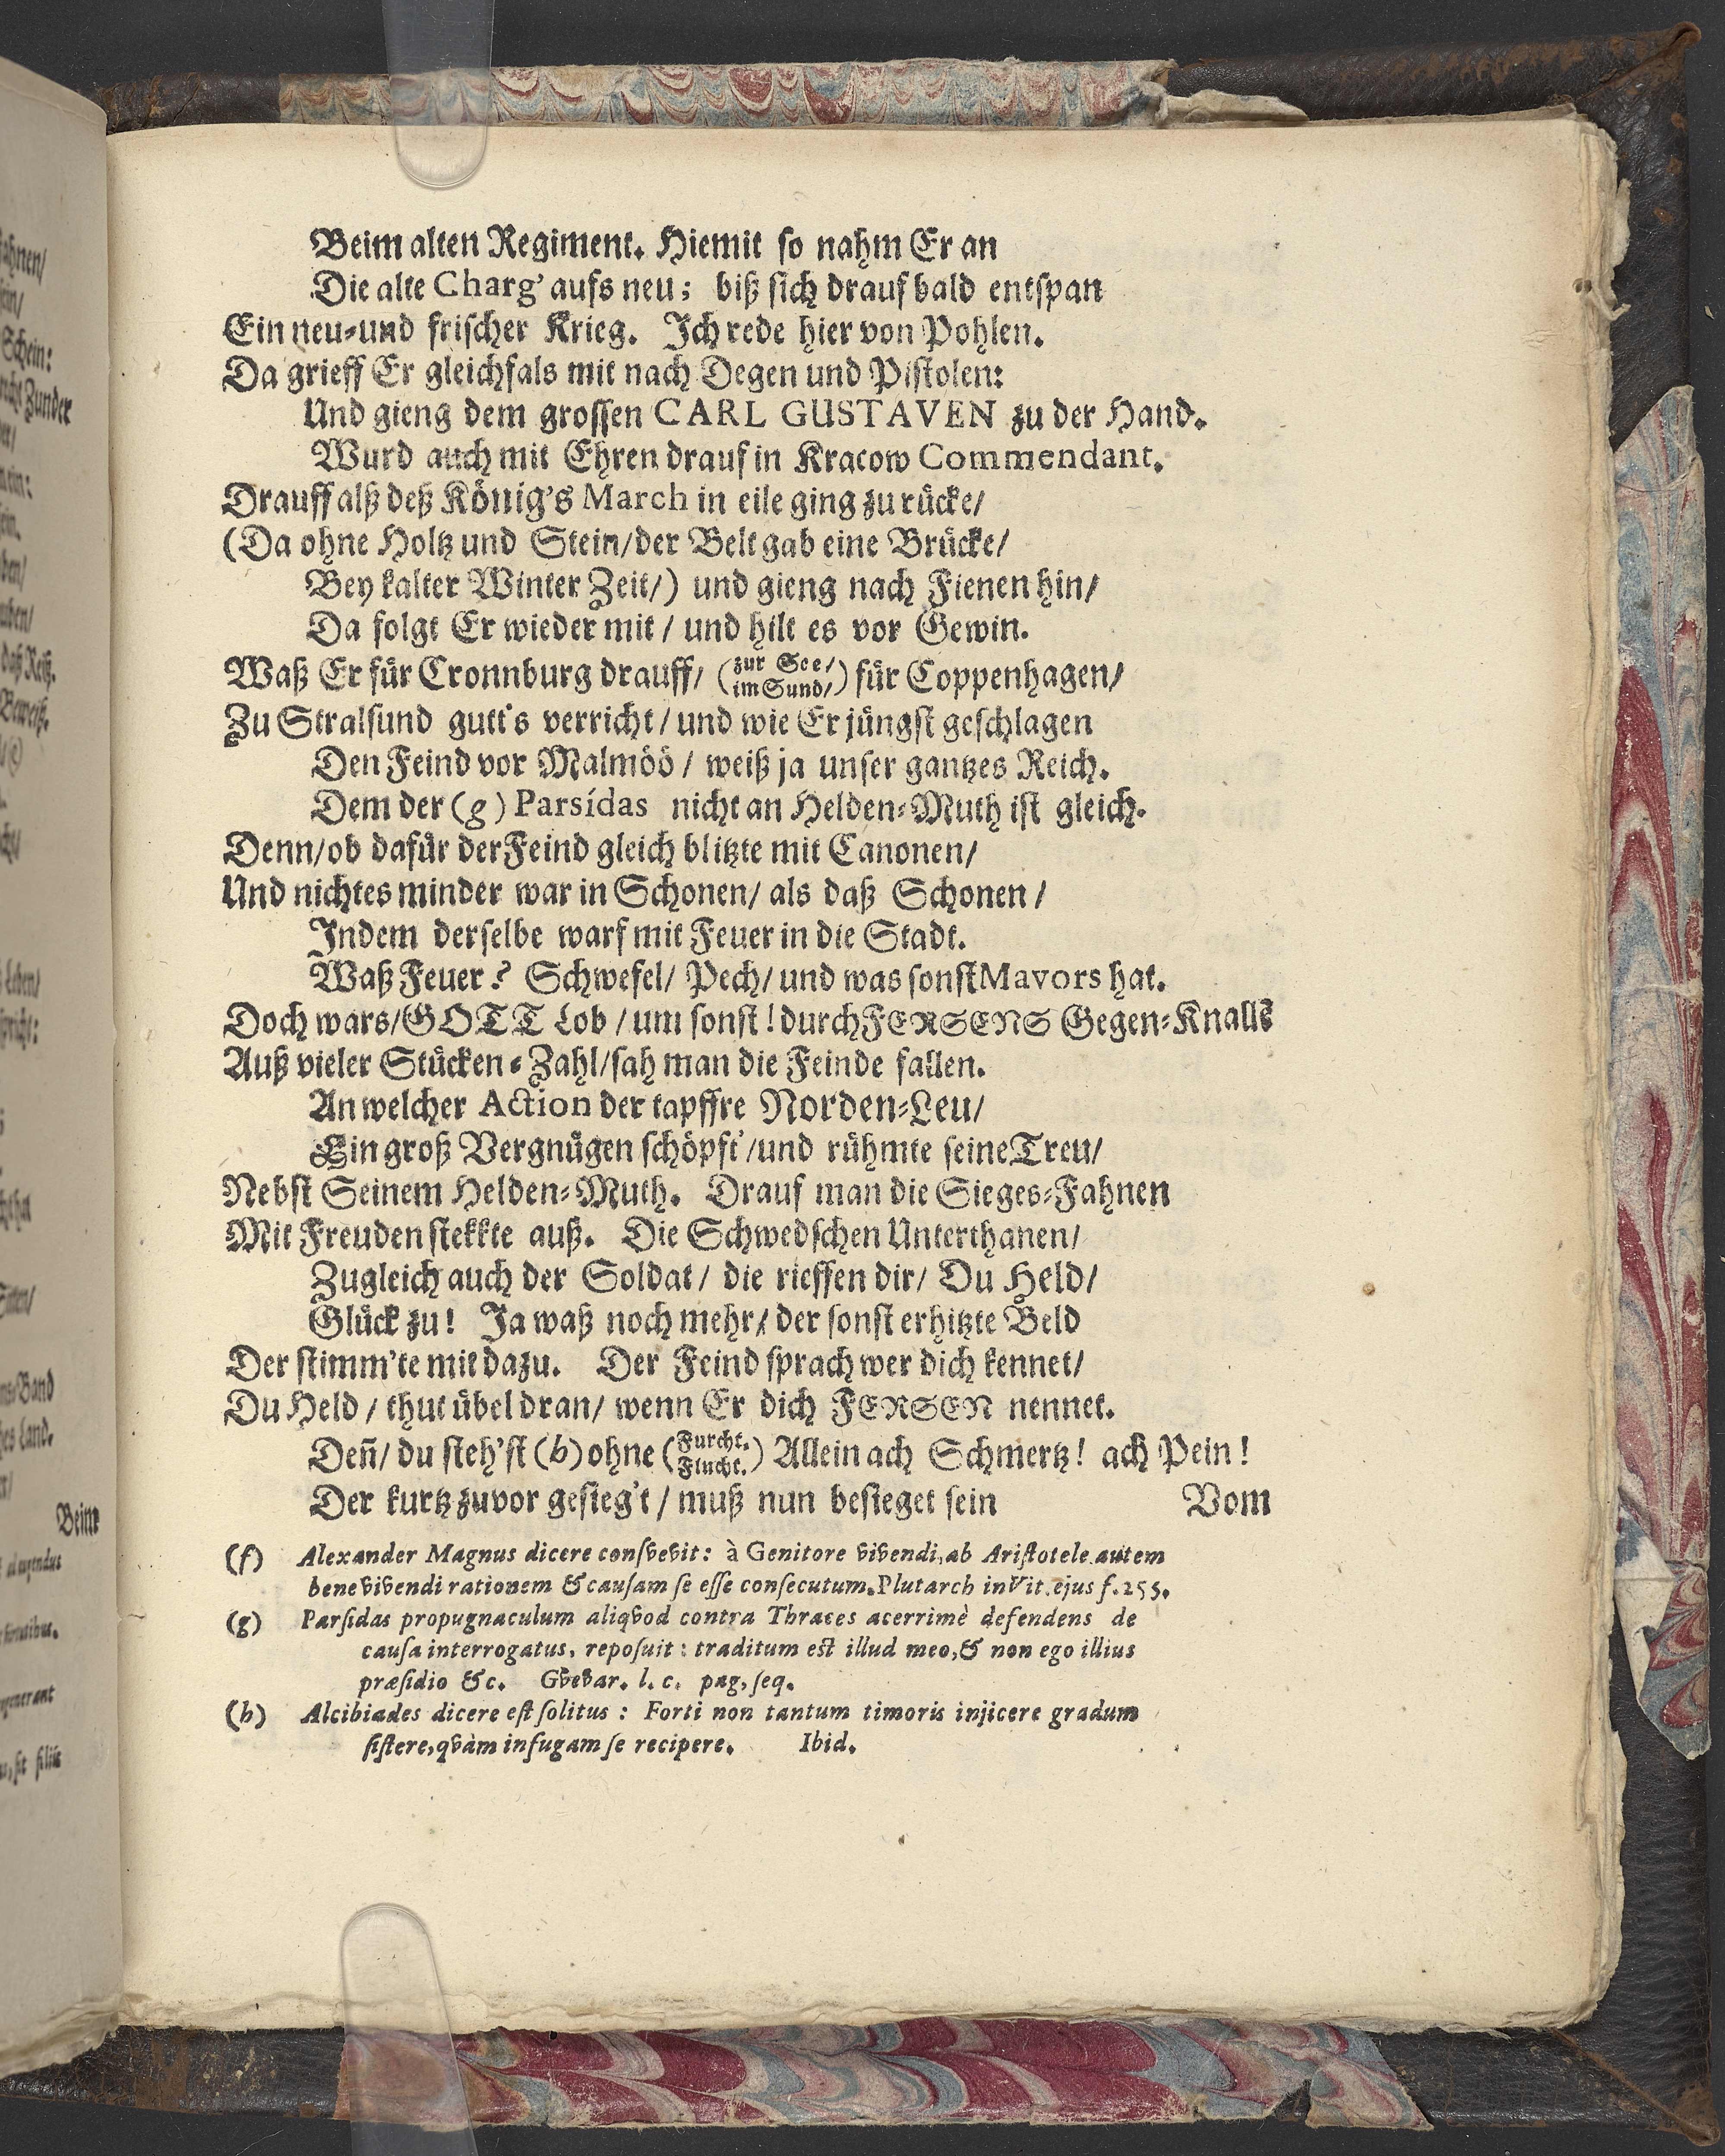 Beim alten Regiment. Hiemit so nahm Er an
Die alte Charg' aufs neu; biß sich drauf bald entspan
Ein neu-und frischer Krieg. Ich rede hier von Pohlen.
Da grieff Er gleichfals mit nach Degen und Pistolen:
Und gieng dem grossen CARL GUSTAVEN zu der Hand.
Wurd auch mit Ehren drauf in Kracow Commendant.
Drauff alß deß König's March in eile ging zu rücke/
(Da ohne Holtz und Stein/der Belt gab eine Brücke/
Bey kalter Winter Zeit/) und gieng nach Fienen hin/
Da folgt Er wieder mit / und hilt es vor Gewin.
Waß Er für Cronnburg drauff/ (zur See/ im Sund/) für Coppenhagen/
Zu Stralsund gutt's verricht / und wie Er jüngst geschlagen
Den Feind vor Malmöö / weiß ja unser gantzes Reich.
Dem der (g) Parsídas nicht an Helden-Muth ist gleich.
Denn/ob dafür der Feind gleich blitzte mit Canonen/
Und nichtes minder war in Schonen/ als daß Schonen /
Indem derselbe warf mit Feuer in die Stadt.
Waß Feuer? Schwefel/ Pech/ und was sonst Mavors hat.
Doch wars/GOTT Lob / um sonst! durch FERSENS Gegen-Knallē
Auß vieler Stücken-Zahl/sah man die Feinde fallen.
An welcher Action der tapffre Norden-Leu/
Ein groß Vergnügen schöpft'/und rühmte seine Treu/
Nebst Seinem Helden-Muth. Drauf man die Sieges-Fahnen
Mit Freuden stekkte auß. Die Schwedschen Unterthanen/
Zugleich auch der Soldat/ die rieffen dir/ Du Held/
Glück zu! Ja waß noch mehr/ der sonst erhitzte Beld
Der stimm'te mit dazu. Der Feind sprach wer dich kennet/
Du Held / thut übel dran/ wenn Er dich FERSEN nennet.
Deñ/ du steh'st (h) ohne (Furcht. Flucht.) Allein ach Schmertz! ach Pein!
Der kurtz zuvor gesieg't / muß nun besieget sein
Vom
(f) Alexander Magnus dicere consvevit: à Genitore vivendi, ab Aristotele autem
bene vivendi rationem & causam se esse consecutum. Plutarch in Vit. ejus f. 255.
(g) Parsidas propugnaculum aliqvod contra Thraces acerrimè defendens de
causa interrogatus, reposuit: traditum est illud meo, & non ego illius
præsidio &c. Gvevar. l. c. pag. seq.
(h) Alcibiades dicere est solitus: Forti non tantum timoris injicere gradum
sistere, qvàm in fugam se recipere. Ibid.